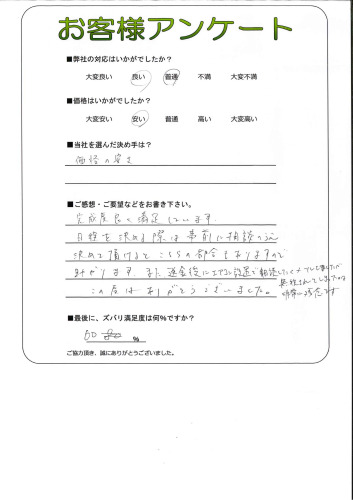 お客様アンケート
■弊社の対応はいかがでしたか?
大変良い 良い 普通 不満 大変不満
■価格はいかがでしたか?
大変安い 安い 普通 高い 大変高い
■当社を選んだ決め手は?
価格の安さ
■ご感想・ご要望などをお書き下さい。
完成度に満足しています。
日程を決める際は事前に相談のうえ
決めて頂けるとこちらの都合もありますので
助かります。また 退去後にエアコン設置で相談したくメールしましたが
無視されてしまったのは
非常に残念です
この度はありがとうございました。
■最後に、ズバリ満足度は何%ですか?
60 %
ご協力頂き、誠にありがとうございました。